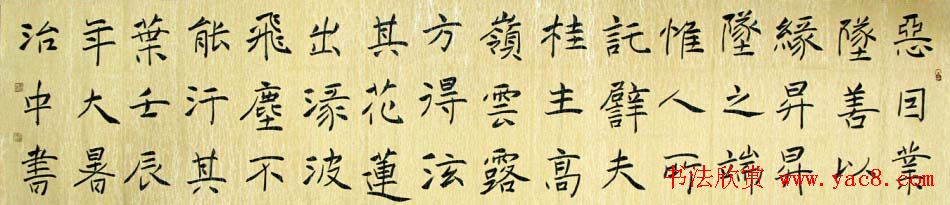 惡因業
墜善以
緣昇昇
墜之端
惟人所
託譬夫
桂生高
嶺雲露
方得泫
其花蓮
出淥波
飛塵不
能汙其
葉壬辰
年大暑
治中書
书法欣赏 www.yac8.com